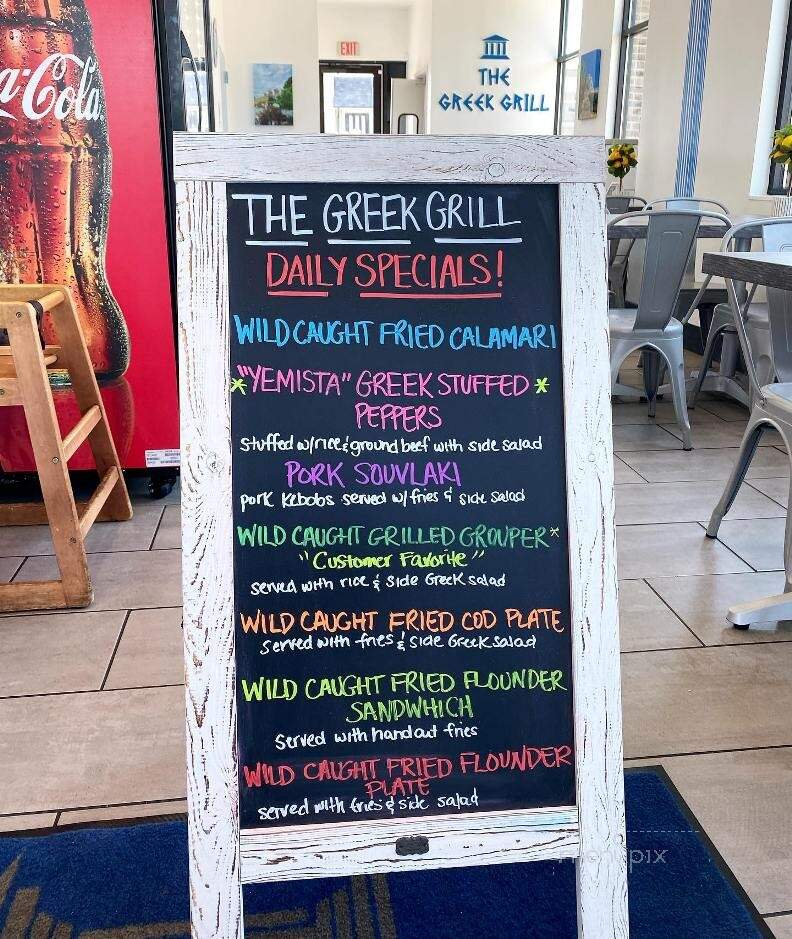 EXIT
THE
GREEK GRILL
a-Cola
THE GREEK GRILL
DAILY SPECIALS!
WILD CAUGHT FRIED CALAMARI
*"YEMISTA" GREEK STUFFED *
PEPPERS
stuffed w/rice & ground beef with side salad
PORK SOUVLAKI
pork Kebobs served w/ fries & side salad
WILD CAUGHT GRILLED GROUPER*
"Customer Favorite"
served with rice & side Greek salad
WILD CAUGHT FRIED COD PLATE
served with fries & side Greek salad
WILD CAUGHT FRIED FLOUNDER
SANDWHICH
served with handcut fries
WILD CAUGHT FRIED FLOUNDER
PLATE
served with fries & side salad
menupix